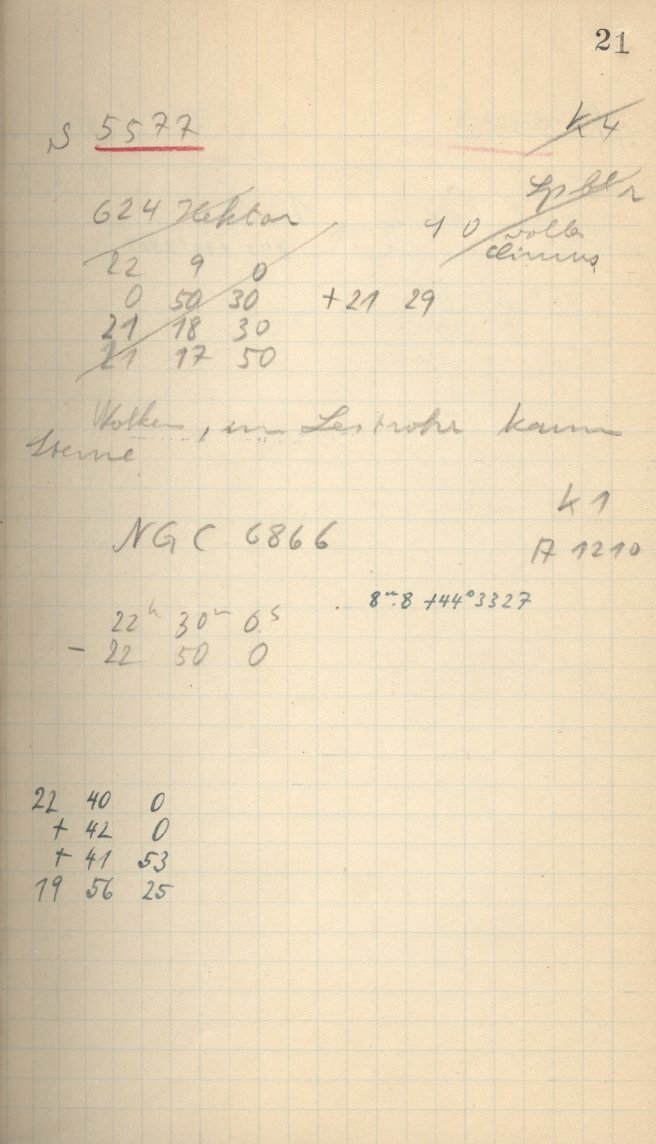 21
S 5577
K 4
624 Hektor
10
22 9 0
0 50 30 +21 29
21 18 30
21 17 50
Wolken, im Leitrohr kaum
Sterne
K 1
NGC 6866
A 1210
8m.8 +44°3327
22h 30m 0s
- 22 50 0
22 40 0
+ 42 0
+ 41 53
19 56 25